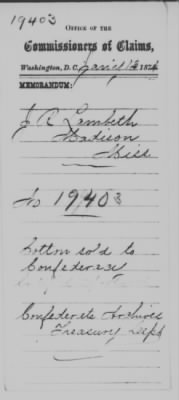 19403
OFFICE OF THE
Commissioners of Claims,
Washington, D.C., 187
MEMORANDUM:
J R Lambeth
Madison
Miss
No 19403
Cotton sold to
Confederacy
Confederate Archives
Treasury Dept